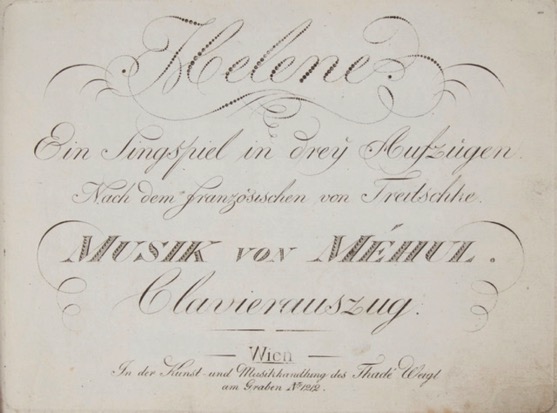 Helene.
Ein Singspiel in drey Aufzügen.
Nach dem französischen von Treitschke.
MUSIK VON MÉHUL.
Clavierauszug.
Wien
In der Kunst und Musikhandlung des Thadé Weigl
am Graben Nº 1212.